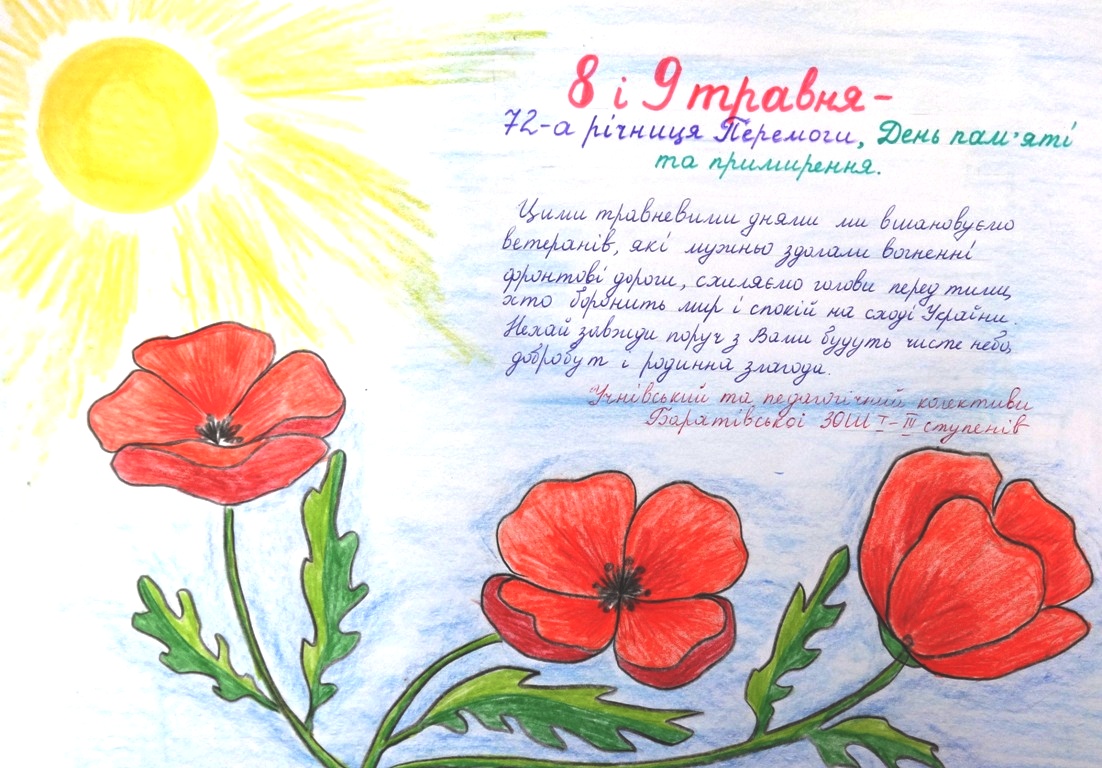 8 і 9 травня -
72-а річниця Перемоги, День пам'яті
та примирення.
Цими травневими днями ми вшановуємо
ветеранів, які мужньо здолали вогненні
фронтові дороги, схиляємо голови перед тими,
хто боронить мир і спокій на сході України.
Нехай завжди поруч з Вами будуть чисте небо,
добробут і родинна злагода.
Учнівський та педагогічний колективи
Баратівської ЗОШ І-ІІІ ступенів